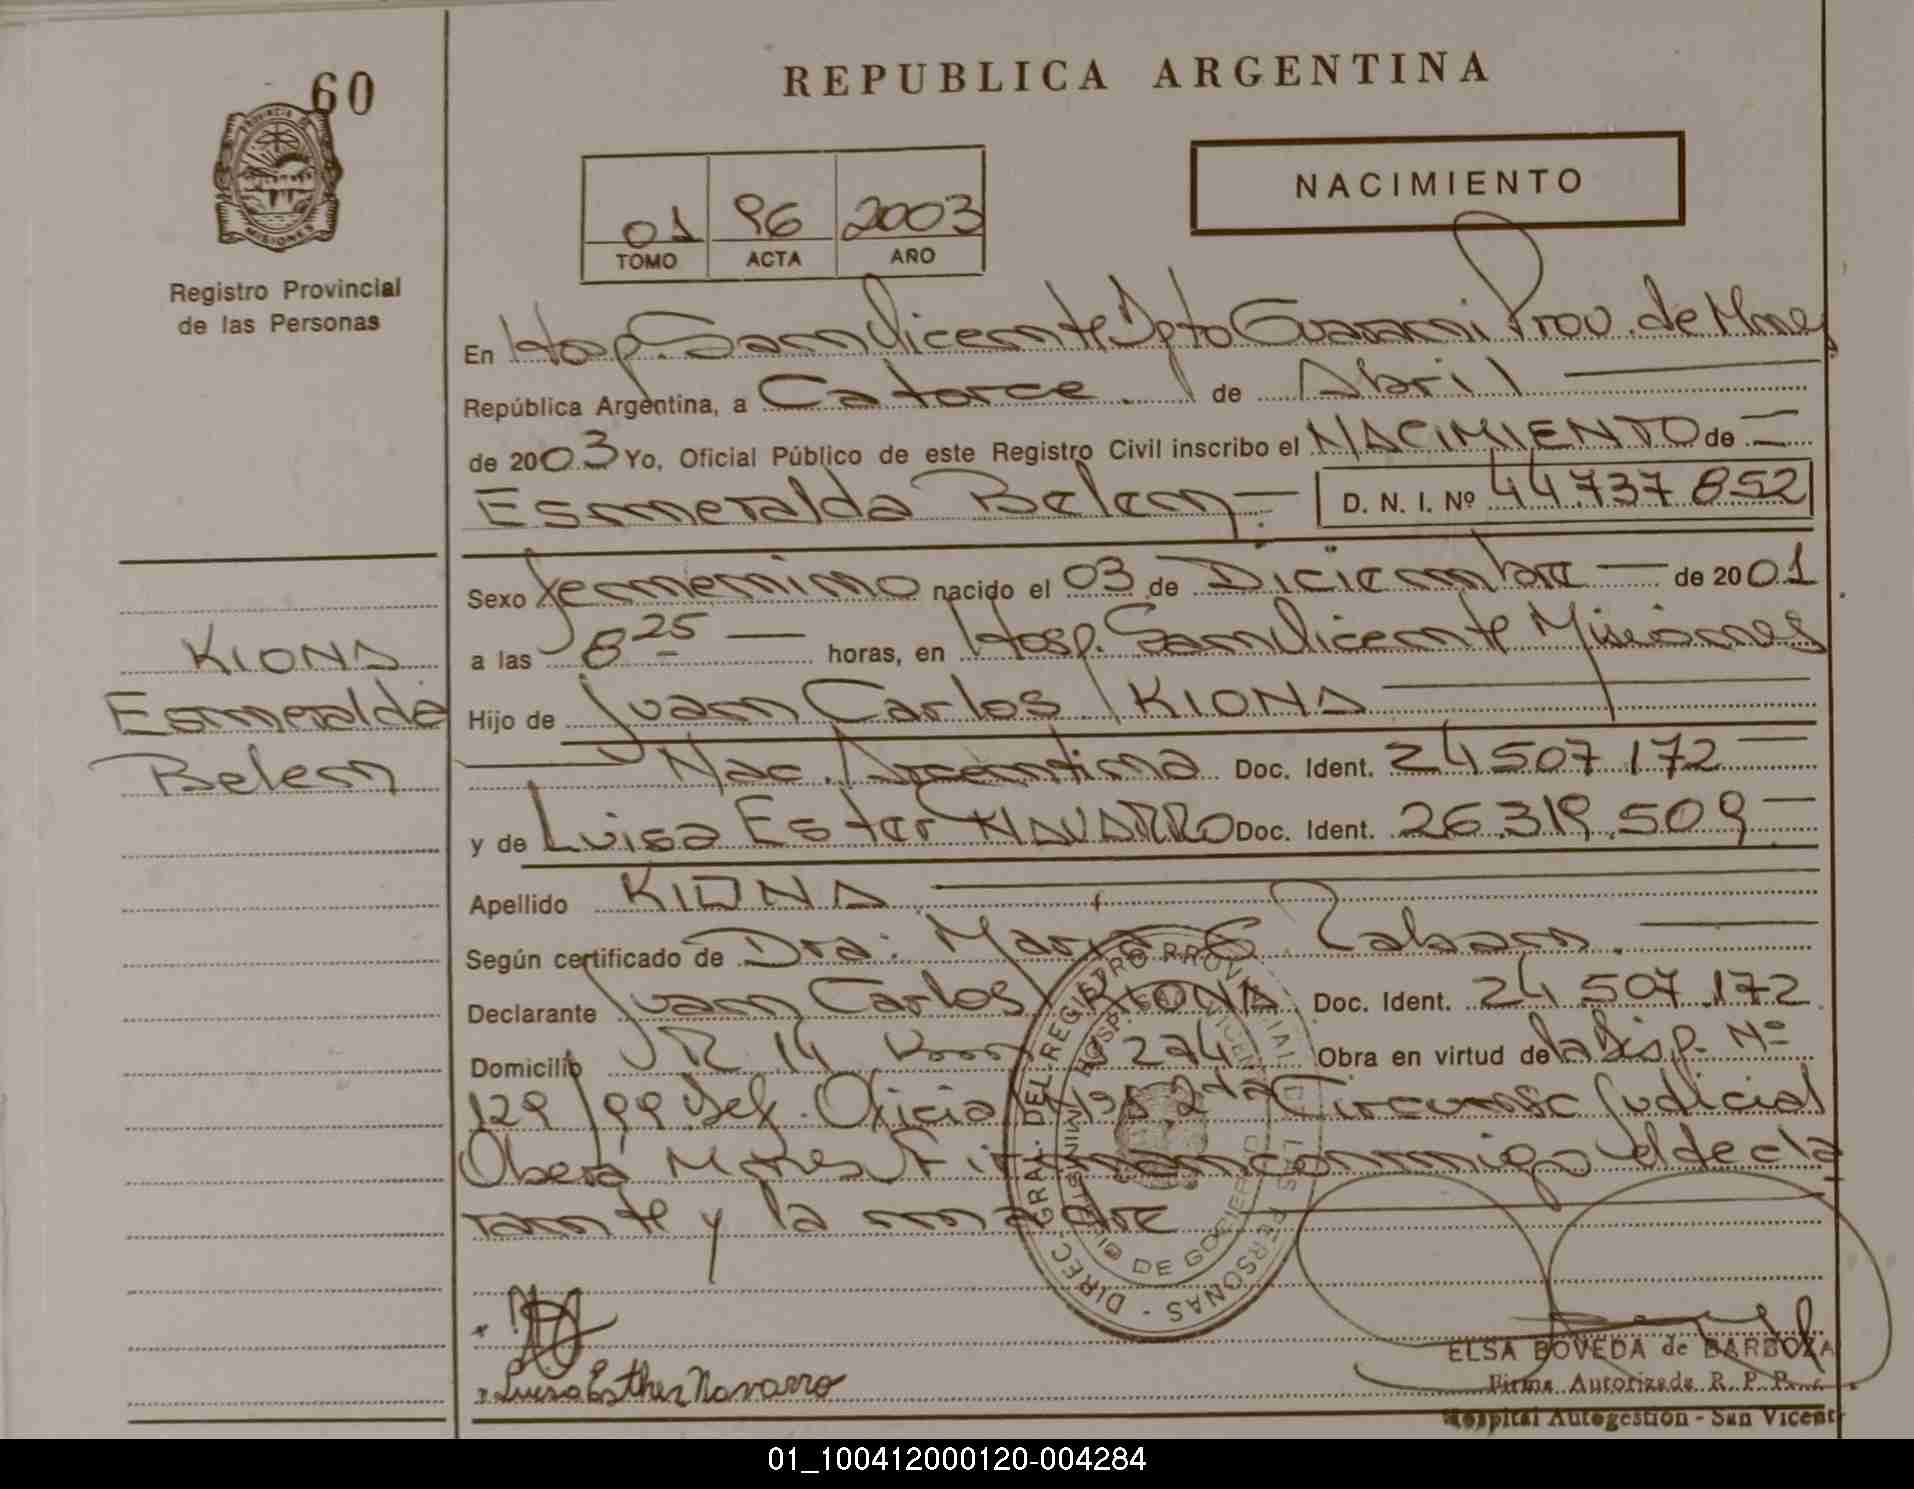 60
REPUBLICA ARGENTINA
PROVINCIA DE
MISIONES
Registro Provincial
de las Personas
01 96 2003
TOMO ACTA AÑO
NACIMIENTO
En Hosp. San Vicente Dpto Guarani Prov. de Mnes
República Argentina, a Catorce de Abril
de 2003 Yo, Oficial Público de este Registro Civil inscribo el NACIMIENTO de
Esmeralda Belen D. N. I. Nº 44.737 852
Sexo femenino nacido el 03 de Diciembre de 2001
a las 8 25 horas, en Hosp. San Vicente Misiones
Hijo de Juan Carlos KIONA
Nac. Argentina Doc. Ident. 24 507 172
y de Luisa Ester NAVARRO Doc. Ident. 26.319.509
Apellido KIONA
Según certificado de Dra: Maria E.
Declarante Juan Carlos KIONA Doc. Ident. 24 507.172
Domicilio R 14 Km 1274 Obra en virtud de la Disp. Nº
129/99 Def. Oficial Nº 2da Circunsc Judicial
Obera Mnes Firman conmigo el decla
rante y la madre
KIONA
Esmeralda
Belen
DIREC. GRAL. DEL REGISTRO PROVINCIAL DE LAS PERSONAS
HOSP. SAN VICENTE
MINISTERIO DE GOBIERNO
Luisa Esther Navarro
ELSA BOVEDA de BARBOZA
Firma Autorizada R. P. P.
Hospital Autogestión - San Vicente
01_100412000120-004284